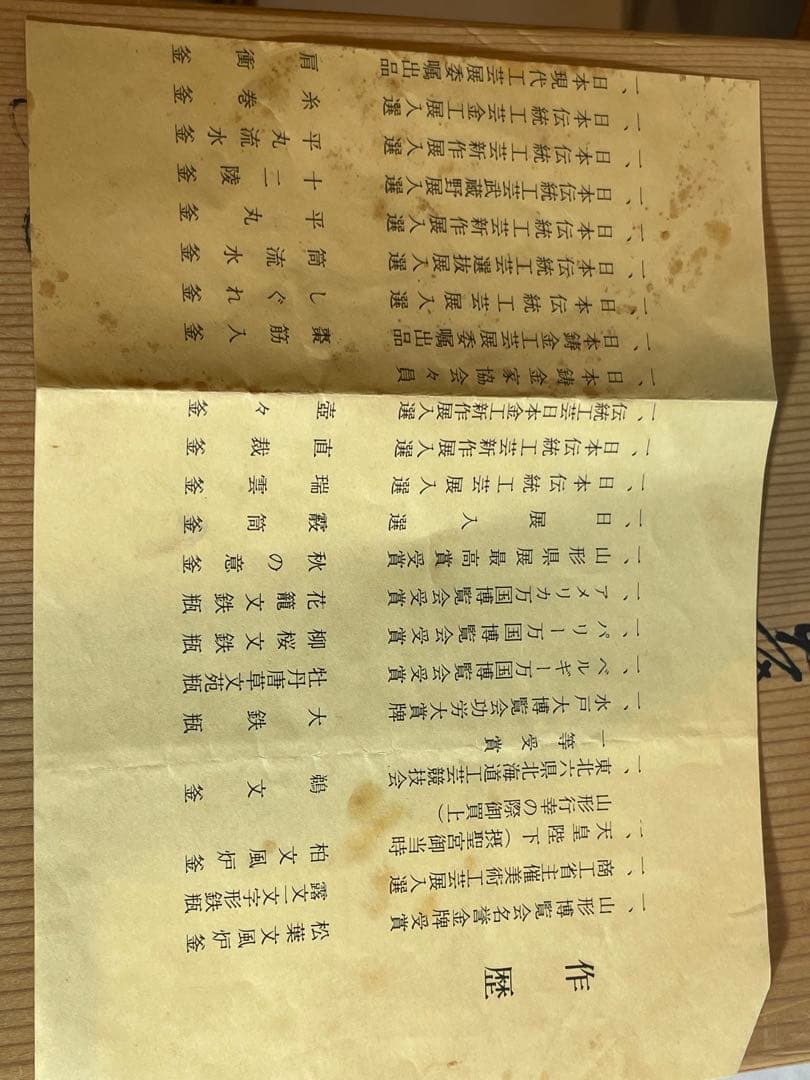 作歴
一、山形博覧会名誉金牌受賞 松葉文風炉釜
一、商工省主催美術工芸展入選 露文一文字形鉄瓶
一、天皇陛下(摂聖宮御当時
山形行幸の際御買上) 柏文風炉釜
一、東北六県北海道工芸競技会
一等受賞 鵜文釜
一、水戸大博覧会功労大賞牌 大鉄瓶
一、ベルギー万国博覧会受賞 牡丹唐草文菀瓶
一、パリー万国博覧会受賞 柳桜文鉄瓶
一、アメリカ万国博覧会受賞 花籠文鉄瓶
一、山形県展最高賞受賞 秋の意釜
一、日展入選 霰筒釜
一、日本伝統工芸展入選 瑞雲釜
一、日本伝統工芸新作展入選 直裁釜
一、伝統工芸日本金工新作展入選 壺々釜
一、日本鋳金家協会々員
一、日本鋳金工芸展委嘱出品 棗筋入釜
一、日本伝統工芸展入選 しぐれ釜
一、日本伝統工芸選抜展入選 筒流水釜
一、日本伝統工芸新作展入選 平丸釜
一、日本伝統工芸武蔵野展入選 十二陵釜
一、日本伝統工芸新作展入選 平丸流水釜
一、日本伝統工芸金工展入選 糸巻釜
一、日本現代工芸展委嘱出品 肩衝釜